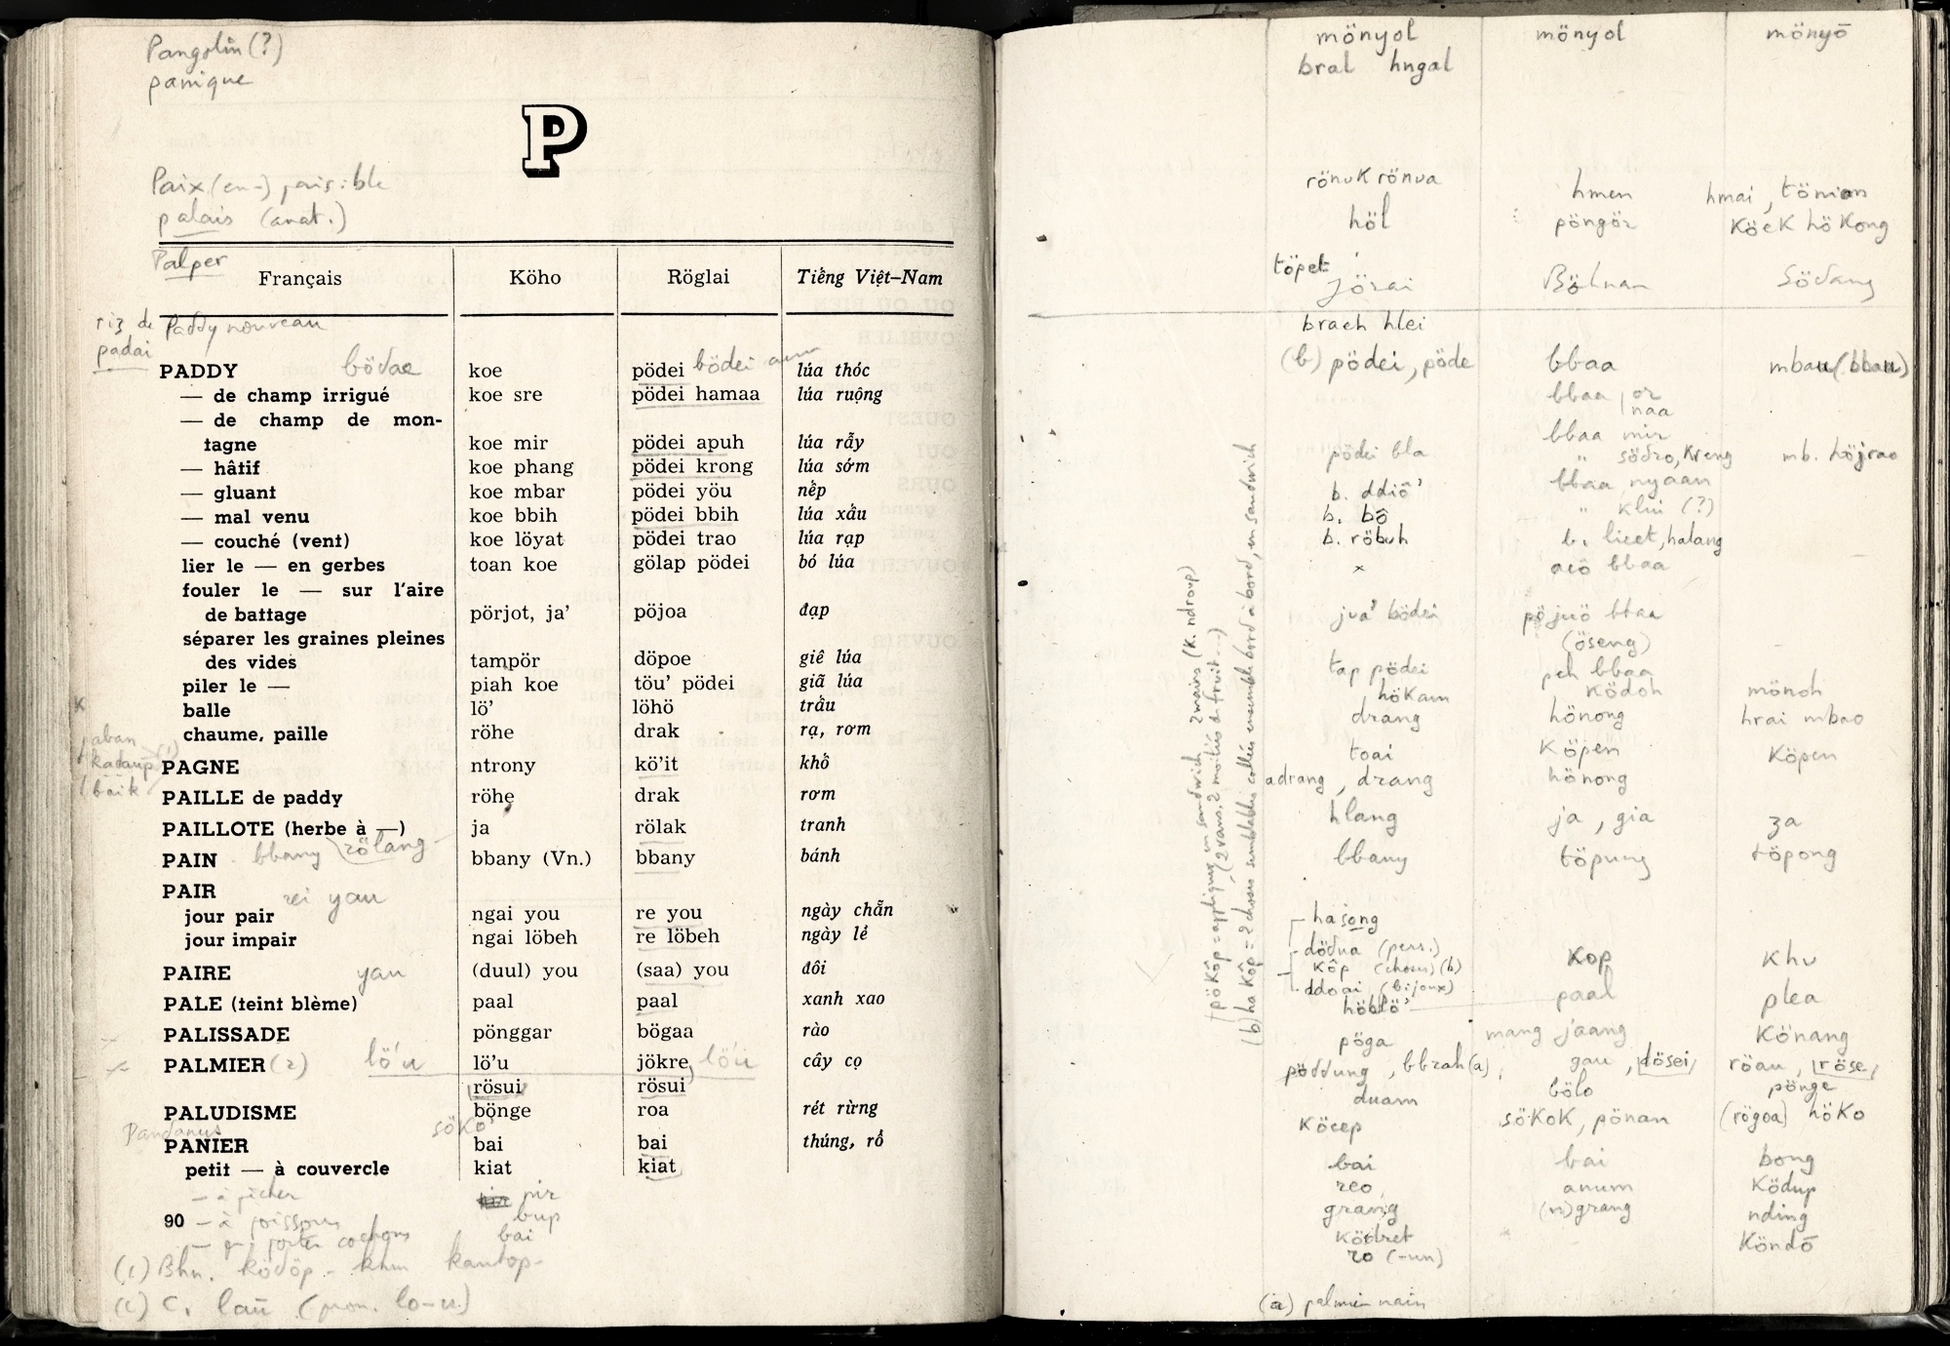 Pangolin (?)
panique
P
Paix (en-) paisible
palais (anat.)
Palper
Français Köho Röglai Tiếng Việt-Nam
riz de Paddy nouveau
padai
PADDY bödae koe pödei bödei lúa thóc
— de champ irrigué koe sre pödei hamaa lúa ruộng
— de champ de mon-
tagne koe mir pödei apuh lúa rẫy
— hâtif koe phang pödei krong lúa sớm
— gluant koe mbar pödei yöu nếp
— mal venu koe bbih pödei bbih lúa xấu
— couché (vent) koe löyat pödei trao lúa rạp
lier le — en gerbes toan koe gölap pödei bó lúa
fouler le — sur l'aire
de battage pörjot, ja' pöjoa đạp
séparer les graines pleines
des vides tampör döpoe giê lúa
piler le — piah koe töu' pödei giã lúa
balle lö' löhö trấu
chaume, paille röhe drak rạ, rơm
PAGNE ntrony kö'it khố
PAILLE de paddy röhe drak rơm
PAILLOTE (herbe à —) ja rölak tranh
PAIN bbany rölang bbany (Vn.) bbany bánh
PAIR rei yau
jour pair ngai you re you ngày chẵn
jour impair ngai löbeh re löbeh ngày lẻ
PAIRE yau (duul) you (saa) you đôi
PALE (teint blème) paal paal xanh xao
PALISSADE pönggar bögaa rào
PALMIER (2) lö'u lö'u jökre, lö'u cây cọ
rösui rösui
PALUDISME bönge roa rét rừng
Pandanus söko'
PANIER bai bai thúng, rổ
petit — à couvercle kiat kiat
— à pêcher nir
90 — à poissons bup
— pr porter cochons bai
(1) Bhn. ködöp - khm kantop-
(2) C. lau (pron. lo-u)
mönyol mönyol mönyö
bral hngal
rönuk rönua hmen hmai, tönian
höl pöngör köek hökong
töpet
Jörai Böhnan Södang
braeh hlei
(b) pödei, pöde bbaa mbau (bbau)
bbaa or
naa
bbaa mir
pödei bla " södro, kreng mb. höjrao
b. ddiô' bbaa nyaan
b. bô " klui (?)
b. röbuh b. lieet, halang
× acö bbaa
jua' bödei pöjuö bbaa
(öseng)
tap pödei peh bbaa
hökam ködoh mönoh
drang hönong hrai mbao
toai köpen köpen
adrang, drang hönong
hlang ja, gia za
bbany töpung töpong
hasong
dödua (pers.) kop khu
kôp (choses) (b)
ddoai (bijoux)
höblö' paal plea
pöga mang jaang könang
pöddung, bbrah (a), gau, dösei, röau, röse,
duam bölo pönge
köcep sökok, pönan (rögoa) höko
bai bai bong
reo anum ködup
grang (n)grang nding
ködret köndö
ro (-un)
(a) palmier nain
(b) ha kôp = 2 choses semblables collées ensemble bord à bord, en sandwich